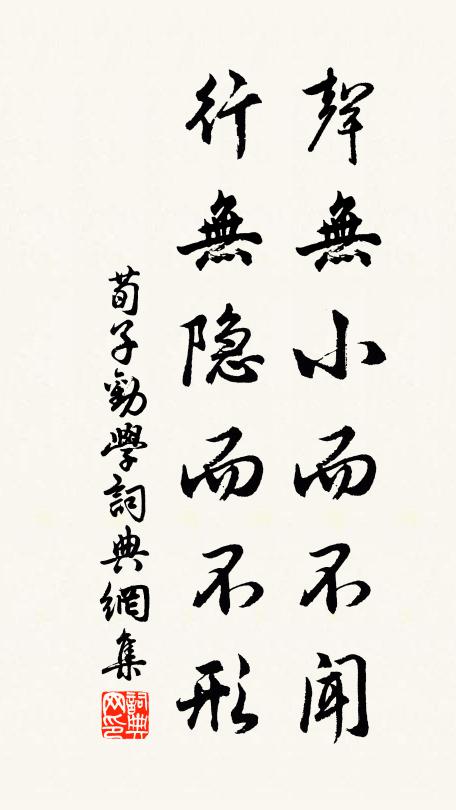 聲無小而不闻
行無隐而不形
荀子勸學詞典網集
詞典网印